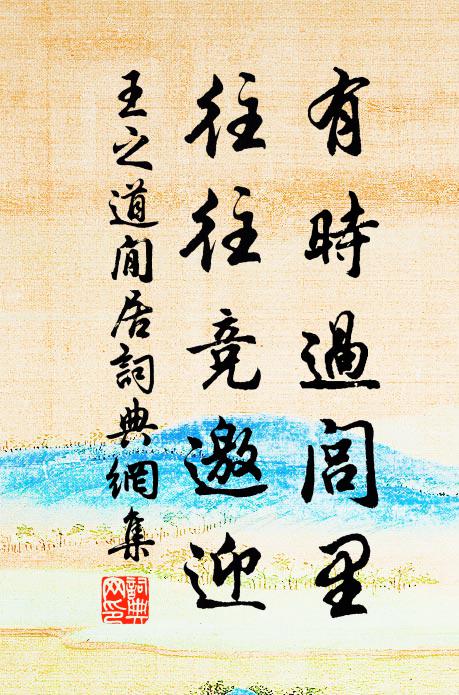 有時過閭里
往往竞邀迎
王之道閒居詞典網集
詞典網印